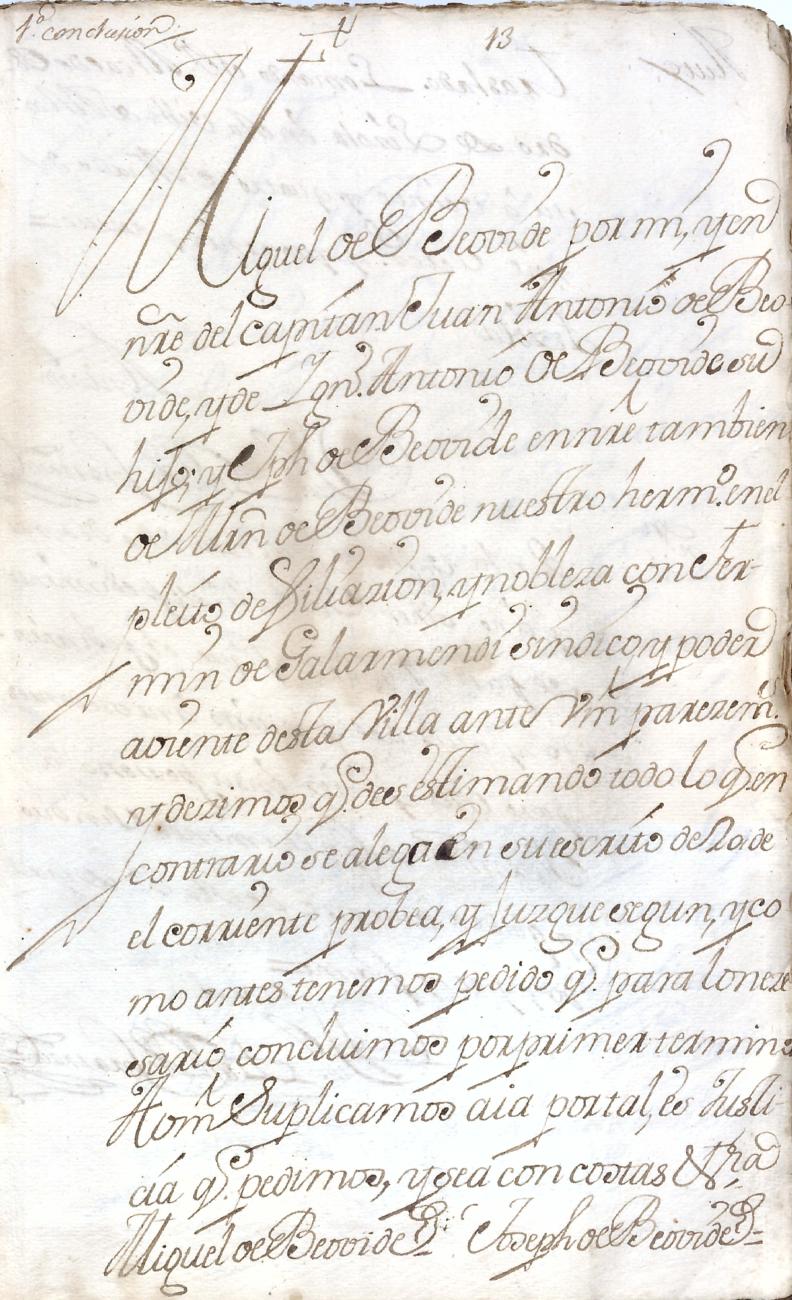 1.ª conclusion
13
Miguel de Beovide por mi, y en
nr̃e del capitan Juan Antonio de Beo-
vide, y de Ign.º Antonio de Beovide su
hijo; y Jph de Beovide en nr̃e tambien
de Mrñ de Beovide nuestro herm.º en el
pleito de filiazion, y nobleza con Fer-
min de Galarmendi sindico, y poder
aviente desta Villa ante Vm̃ parezem.s
y dezimos q.e desestimando todo lo q.e en
contrario se alega en su escrito de 20 de
el corriente probea, y Juzgue segun, y co
mo antes tenemos pedido q.e para lo neze
sario concluimos por primer termino
A Vm̃ Suplicamos aia por tal, es Justi-
cia q.e pedimos, y sea con costas &tra
Miguel de Beovide Joseph de Beovide